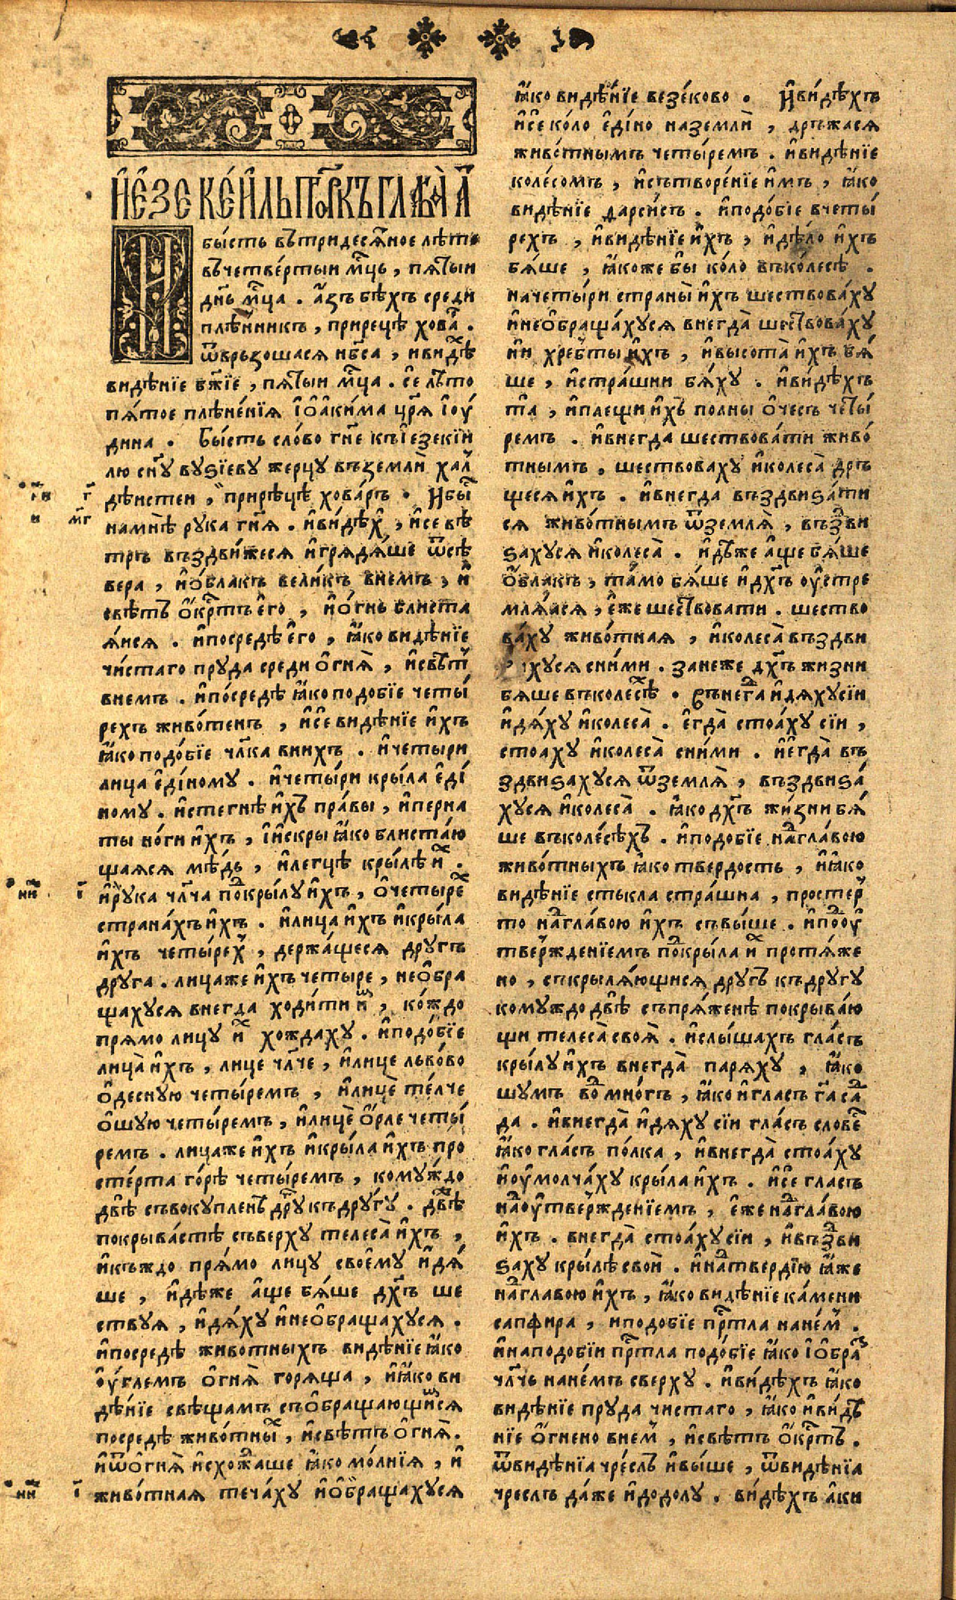 И҆е҆зеке́и҆ль пр҇ркъ глава̀ а҃
бы́сть въ тридеся́ное лѣто
въ четве́ртыи мц҇ъ, пя́тыи
дн҇ь мц҇а. а҆́зъ бѣ́хъ среди
плѣ́нникъ, при рецѣ̀ хова҇.
ѿврьзошася нб҇са, и҆ ви́дѣ
видѣнїе бж҇їе, пя́тыи мц҇а. сѐ лѣ́то
пя́тое плѣне́нїя і҆о҆аки́ма цр҇я і҆ою́
дина. Бы́сть сло́во гн҇е къ і҆езекїи
лю сн҇у вузі́еву жерцу въ землѝ хал
дѣистеи, при рѣ́цѣ хова́ръ. И҆ бы҇
на мнѣ̀ рука гн҇я. и҆ ви́дѣх, и҆ се вѣ
тръ въздви́жеся и҆ грядя́ше ѿ сѣ
вера, и҆ о҆́блакъ вели́къ в не́мъ, и҆
свѣтъ о҆́кр҇тъ е҆го̀, и҆ о҆́гнь блиста
я́ися. и҆ посредѣ̀ е҆го̀, ꙗ҆́ко видѣ́нїе
чи́стаго пруда среди о҆гня̀, и҆ свѣ́т
в не́мъ. и҆ по́средѣ ꙗ҆́ко подо́бїе четы́
рехъ живо́тенъ, и҆ се видѣ́нїе и҆́хъ
ꙗ҆́ко подо́бїе чл҇ка в ни́хъ. и҆ че́тыри
лица е҆ди́ному. и҆ четы́ри кры́ла е҆ді́
ному. и҆ сте́гнѣ и҆́хъ пра́вы, и҆ перна
ты но́ги и҆́хъ, і҆ и҆скры ꙗ҆́ко блиста́ю
щаяся мѣ́дь, и҆ легцѣ̀ кры́лѣ и҆́х.
и҆ ру́ка чл҇ча по́д крылу и҆́хъ, о҆ четы́ре
страна́хъ и҆́хъ. и҆ лица̀ и҆́хъ и҆ кры́ла
и҆́хъ четы́рех, держа́щеся дру́гъ
дру́га. лица же и҆́хъ четы́ре, не о҆бра
щахуся внегда ходи́ти и҆м, ко́ждо
прямо лицу̀ и҆́х хождаху. и҆ подо́бїе
лица̀ и҆́хъ, лице чл҇че, и҆ лице льво́во
о҆десну́ю четы́ремъ, и҆ лицѐ те́лче
о҆шу́ю четы́ремъ, и҆ лицѐ о҆́рле четы́
ремъ. лица же и҆́хъ и҆ кры́ла и҆́хъ про
сте́рта го́рѣ четы́ремъ, кому́ждо
двѣ съвокупленѣ дру́гу къ дру́гу. двѣ́
покрыва́стѣ съ верху телеса̀ и҆́хъ,
и҆ къ́ждо пря́мо лицу своему̀ и҆дя́
ше, и҆дѣ́же а҆́ще бя́ше дх҇ъ ше
ствуя, и҆дя́ху и҆ не о҆браща́хуся.
и҆ посредѣ̀ живо́тныхъ видѣ́нїе ꙗ҆́ко
о҆у҆́глемъ о҆гня̀ горя́ща, и҆ ꙗ҆́ко ви
дѣ́нїе свѣща́мъ съ о҆бращающи́мся
посредѣ̀ живо́тны, и҆ свѣ́тъ о҆гня̀.
и҆ ѿ о҆гня̀ и҆схожа́ше ꙗ҆́ко мо́лнїя, и҆
живо́тная теча́ху и҆ о҆браща́хуся
ꙗ҆́ко видѣ́нїе везе́ково. И҆ ви́дѣхъ
и҆ се ко́ло е҆ди́но на землѝ, дръжася
живо́тнымъ четы́ремъ. и҆ видѣ́нїе
коле́сомъ, и҆ сътворе́нїе и҆́мъ, ꙗ҆́ко
видѣ́нїе дарси́съ. и҆ подо́бїе в четы́
рехъ, и҆ видѣ́нїе и҆́хъ, и҆ дѣ́ло и҆́хъ
бя́ше, ꙗ҆́коже бы̀ ко́ло въ ко́лесѣ̀.
на четы́ри страны̀ и҆́хъ шествова́ху
и҆ не о҆браща́хуся внегда̀ ше́ствоваху
и҆ хребты̀ и҆́хъ, и҆ высота̀ и҆́хъ бя́
ше, и҆ стра́шни бя́ху. и҆ ви́дѣхъ
та̀, и҆ плещи и҆́хъ полны о҆че́съ четы́
ремъ. и҆ внегда шествова́ти живо́
тнымъ. шествоваху и҆ колеса̀ дръ
щеся и҆́хъ. и҆ внегда въздвиѕа́ти
ся живо́тнымъ ѿ земля̀, въздви
ѕахуся и҆ колеса̀. и҆дѣже а҆́ще бя́ше
о҆́блакъ, та́мо бя́ше и҆ дх҇ъ о҆у҆стре
мля́яся, е҆́же ше́ствовати. шество
ва́ху живо́тная, и҆ колеса̀ въздви
хуся с ни́ми. занеже дх҇ъ жи́зни
бяше въ колесѣ̀. Внегда и҆дя́ху сїи
и҆дя́ху и҆ колеса̀. е҆гда̀ стоа́ху сїи,
стоа́ху и҆ колеса̀ с ни́ми. и҆ е҆гда̀ въ
здвиѕахуся ѿ земля̀, въздвиѕа́
хуся и҆ колеса̀. ꙗ҆́ко дх҇ъ жи́зни бя́
ше въ коле́сѣхъ. и҆ подобїе над главо́ю
живо́тныхъ ꙗ҆́ко твердость, и҆ ꙗ҆́ко
видѣ́нїе стькла стра́шна, просте́р
то над главо́ю и҆́хъ съвы́ше. и҆ под о҆у҆
твержде́нїемъ по́крыла и҆́х протя́же
но, скрыля́ющися дру́гъ къ дру́гу
кому́ждо двѣ̀ съпря́женѣ покрыва́ю
щи телеса̀ своя̀. и҆ слы́шахъ гла́съ
кры́лу и҆́хъ внегда̀ паря́ху, ꙗ҆́ко
шу́мъ во́д мно́гъ, ꙗ҆́ко и҆ гла́съ га сад
да. и҆ внегда̀ и҆дя́ху сїи гла́съ слове
ꙗ҆́ко гла́съ по́лка, и҆ внегда̀ стоа́ху
и҆ о҆у҆молча́ху кры́ла и҆́хъ. и҆ се гла́съ
над о҆у҆твержде́нїемъ, е҆́же над главо́ю
и҆́хъ. внегда̀ стоа́ху сїи, и҆ въздви
ѕаху кры́лѣ своѝ. и҆ над тве́рдїю ꙗ҆́же
над главо́ю и҆́хъ, ꙗ҆́ко видѣ́нїе ка́мени
сапфи́ра, и҆ подо́бїе пр҇тла на не́м.
и҆ на подо́бїи пр҇тла подо́бїе ꙗ҆́ко і҆ о҆браз
чл҇чь на не́мъ сверху̀. и҆ ви́дѣхъ ꙗ҆́ко
видѣ́нїе пруда чи́стаго, ꙗ҆́ко и҆ ви́дѣ
нїе о҆́гнено в не́м, и҆ свѣ́тъ о҆́кр҇тъ.
ѿ видѣ́нїа чре́слъ и҆ вы́ше, ѿ видѣ́нїа
чре́слъ да́же и҆ до до́лу. ви́дѣхъ а҆́ки